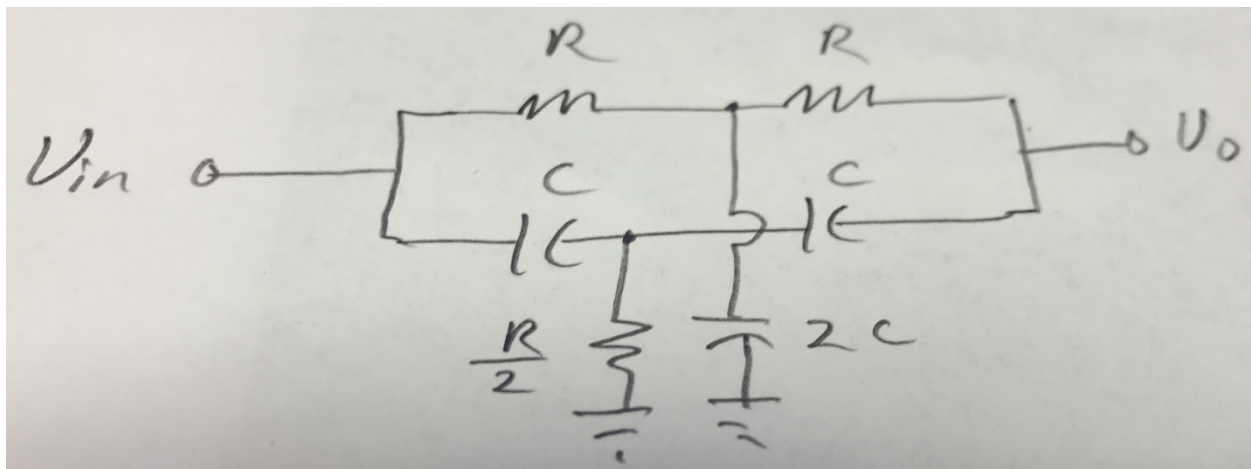 R R
Vin C C Vo
R/2 2C